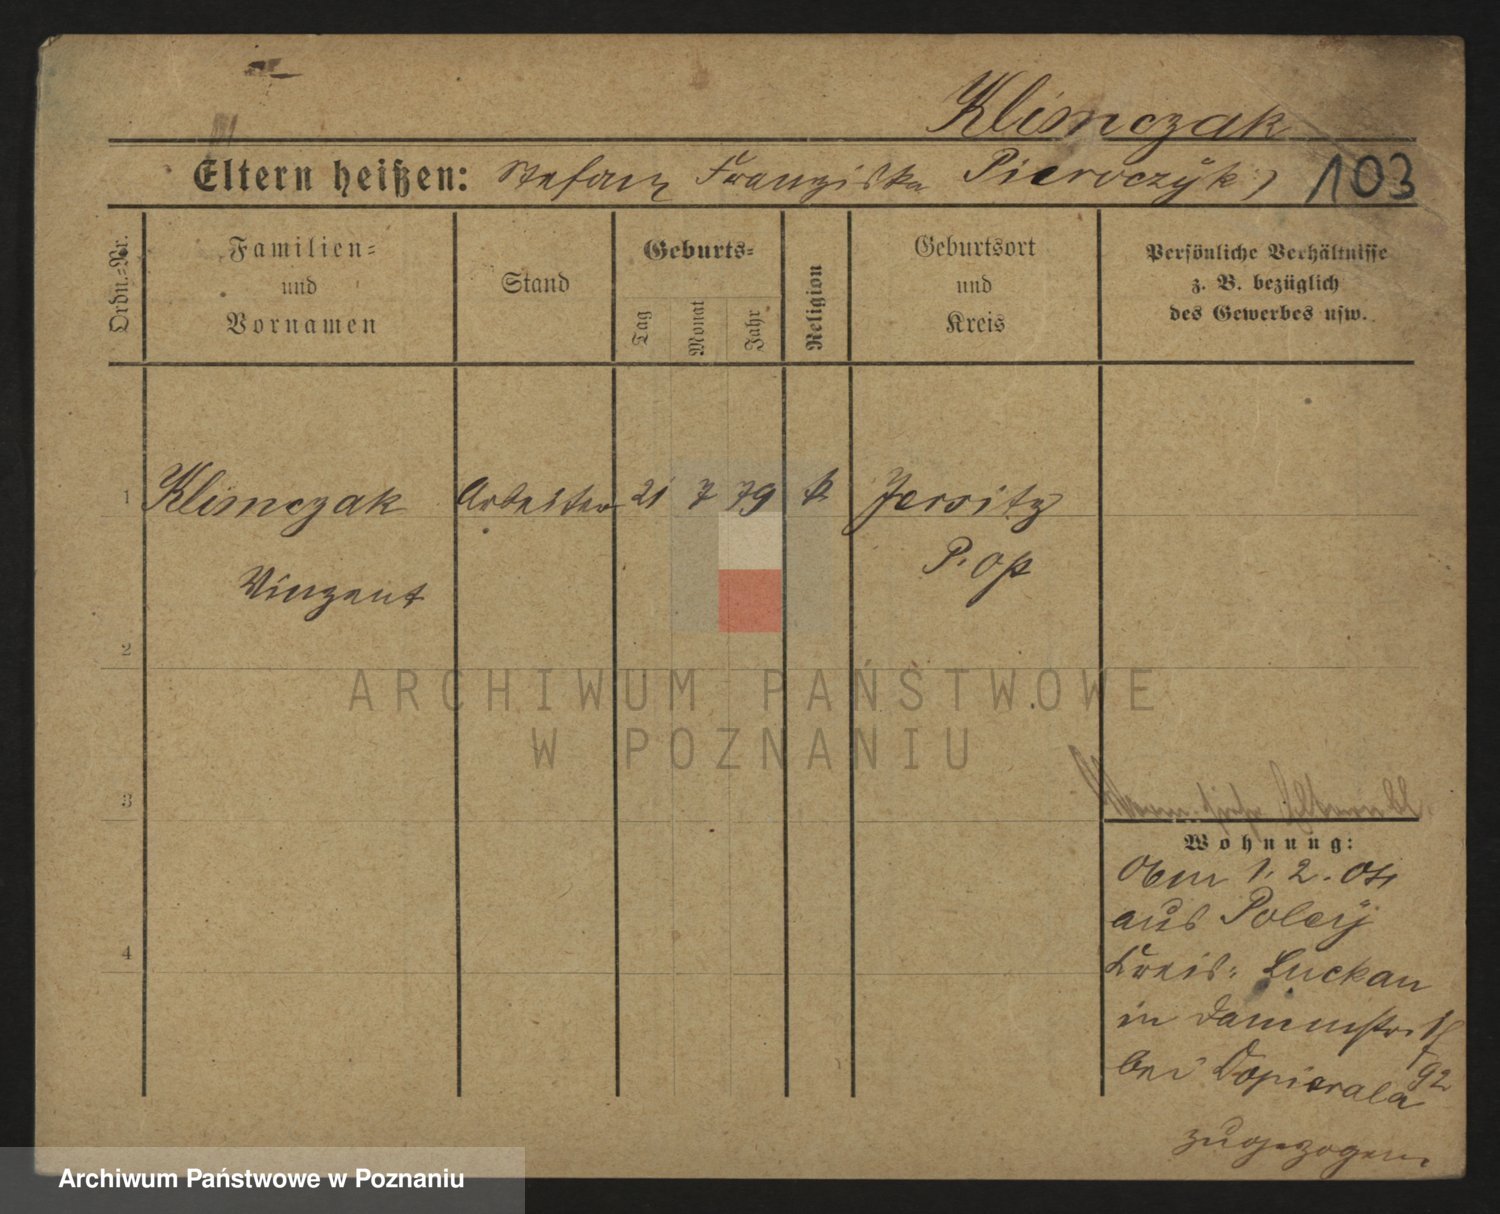 Klimczak
Eltern heißen: Stefan Franziska Pieroczyk) 103
Ordn.-Nr.
Familien-
und
Vornamen
Stand
Geburts-
Tag
Monat
Jahr
Religion
Geburtsort
und
Kreis
Persönliche Verhältnisse
z. B. bezüglich
des Gewerbes usw.
1 Klimczak Arbeiter 21 7 79 k Jersitz
Vinzent P. Ost
2
ARCHIWUM PAŃSTWOWE
W POZNANIU
3
Wohnung:
1. 2.
aus
Kreis: Luckau
in Dammstr.
bei Dopierala 92
zugezogen.
4
Archiwum Państwowe w Poznaniu